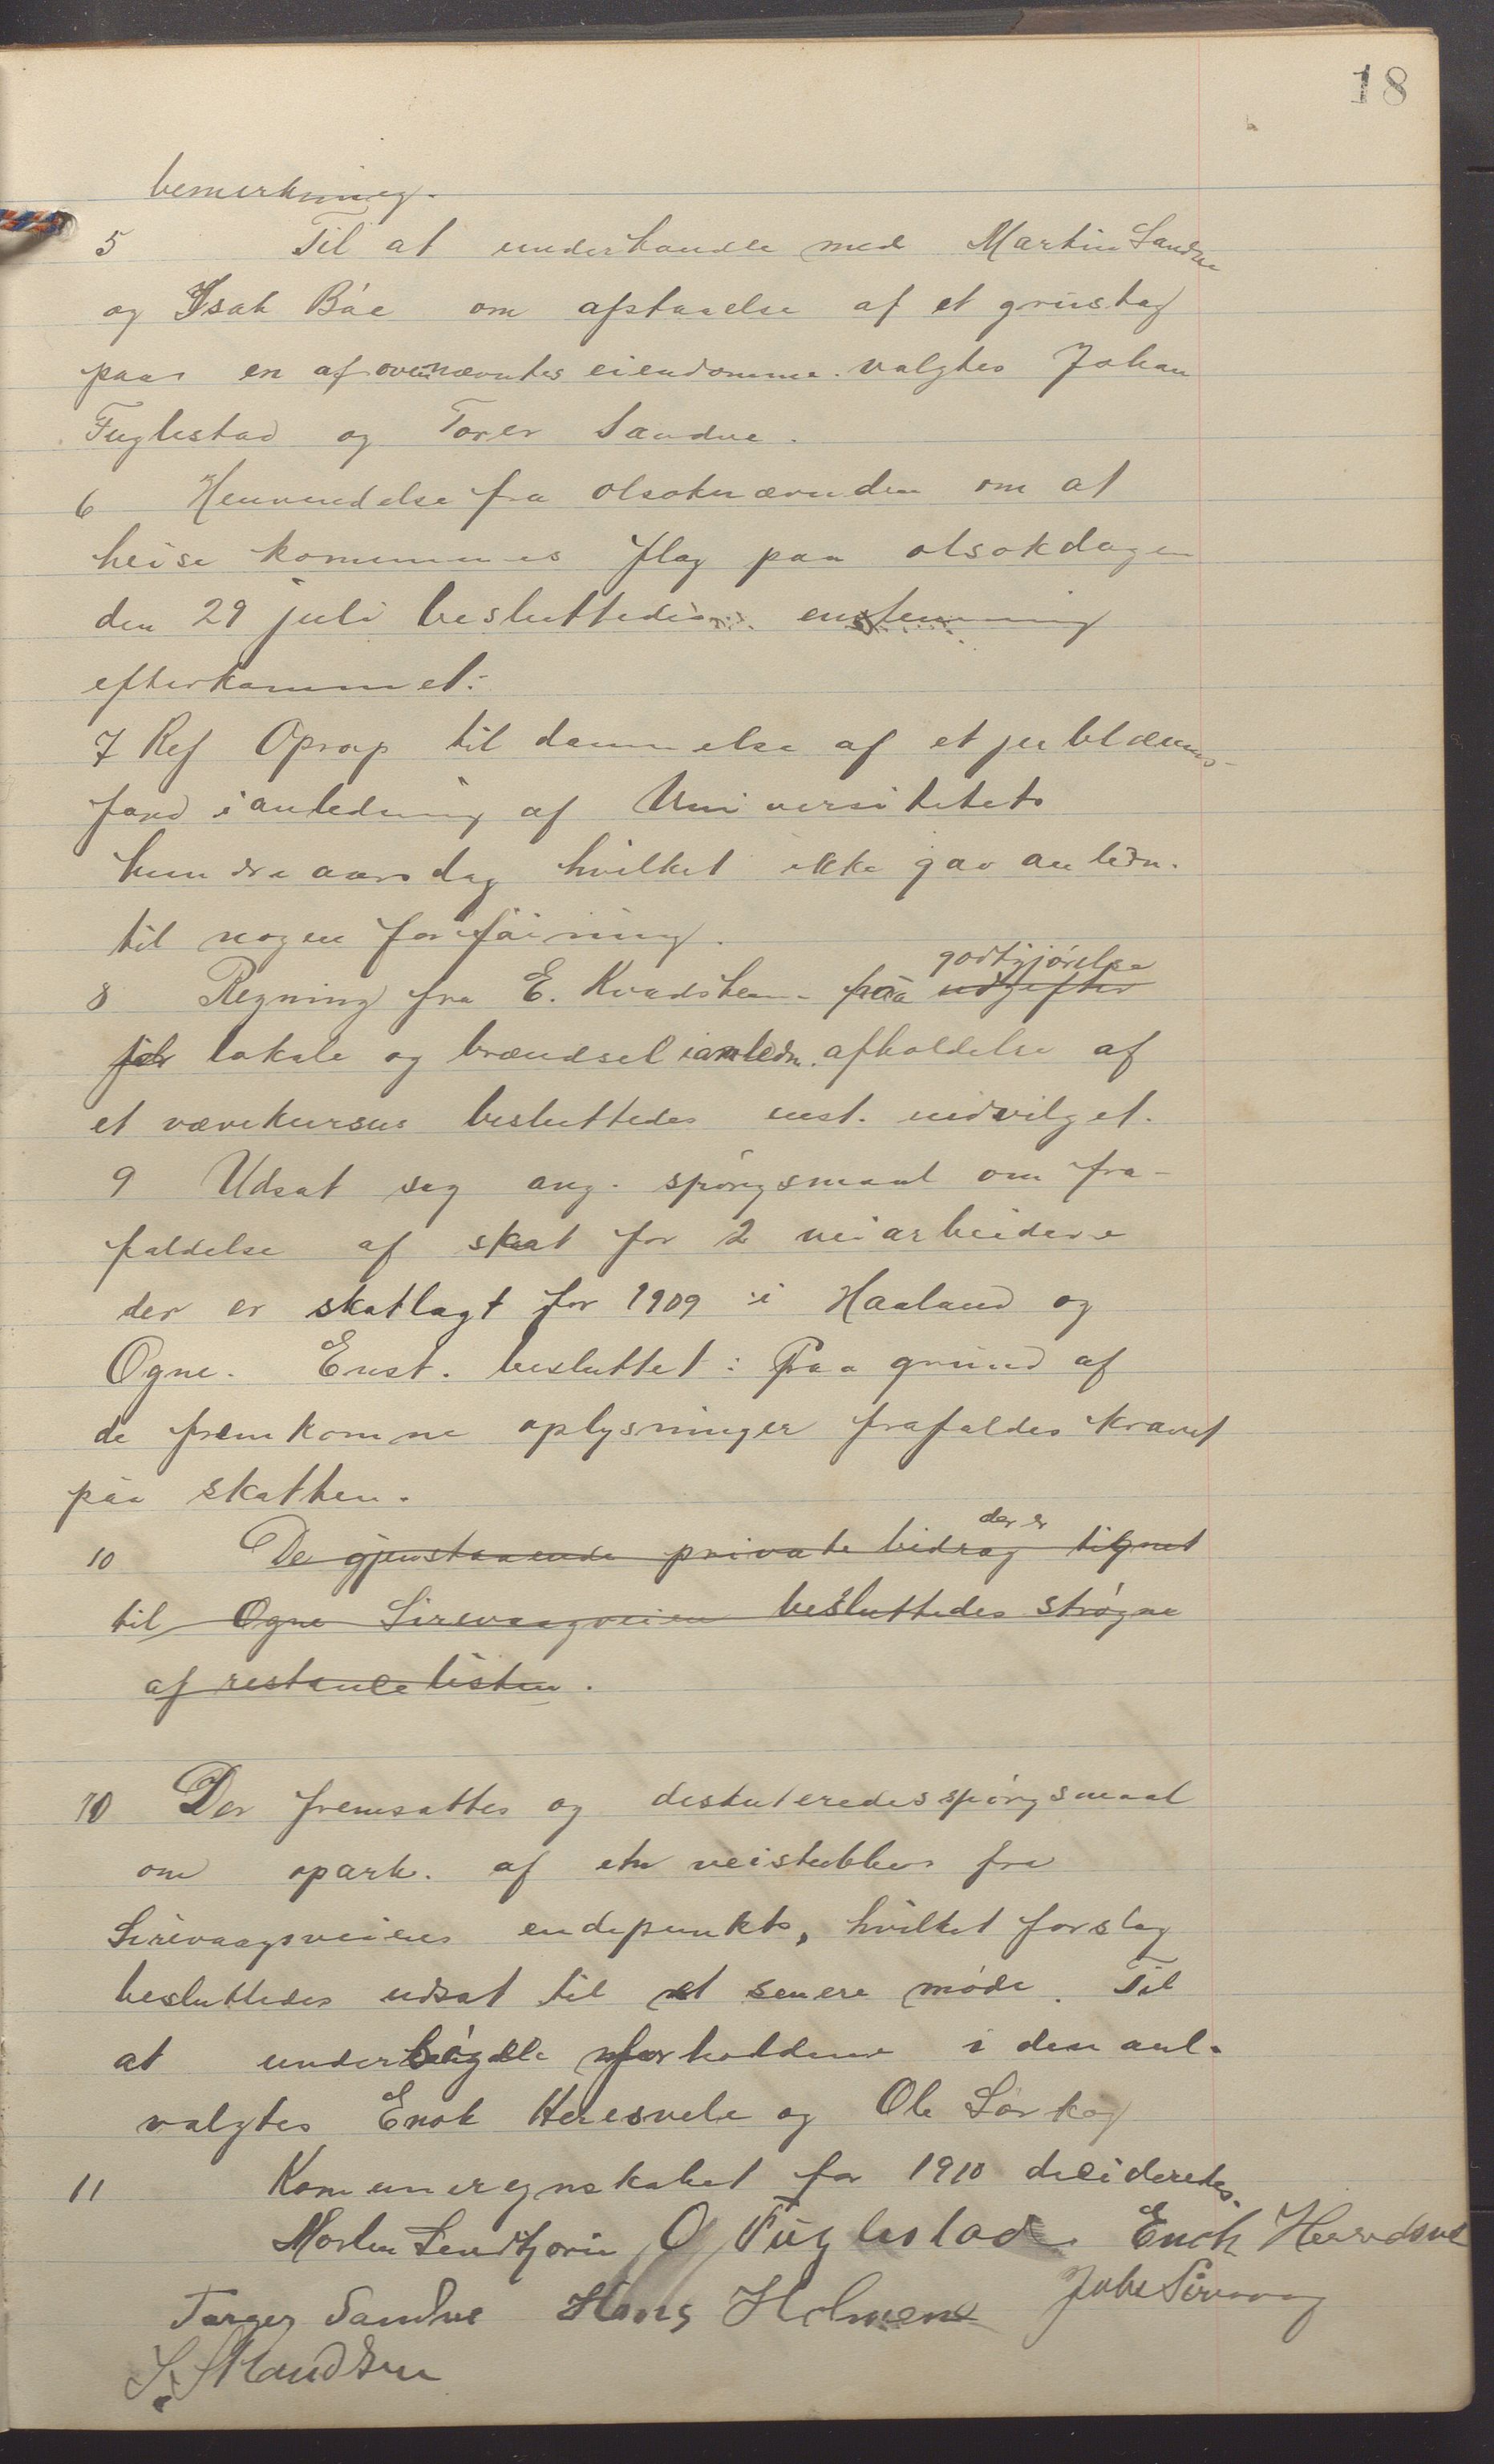 18
bemerkning.
5 Til at underhandle med Martin Sandve
og Isak Båe om afstaaelse af et grustag
paa en af ovennævntes eiendomme. valgtes Johan
Fuglestad og Torer Sandve.
6 Henvendelse fra olsoknævnden om at
heise kommunes flag paa olsokdagen
den 29 juli besluttedes enstemmig
efterkommet.
7 Ref Oprop til dannelse af et jubilæums-
fond i anledning af Universitetets
hundreaarsdag hvilket ikke gav anledn.
til nogen forføining.
8 Regning fra E. Kvadsheim paa udgifter godtgjørelse
for lokale og brændsel i anledn. afholdelse af
et vævekursus besluttedes enst. indvilget.
9 Udsat sag ang. spörgsmaal om fra-
faldelse af skat for 2 veiarbeidere
der er skatlagt for 1909 i Haaland og
Ogne. Enst. besluttet: Paa grund af
de fremkomne oplysninger frafaldes kravet
paa skatten.
10 De gjenstaaende private bidrag der er lignet
til Ogne Sirevaagveien besluttedes strøgne
af restancelisten.
10 Der fremsattes og deskuteredes spörgsmaal
om opark. af en veistubben fra
Sirevaagsveiens endepunkt, hvilket forslag
besluttedes udsat til et senere møde. Til
at under forholdene i den anl.
valgtes Enok Heresvele og Ole Lørkog
11 Komuneregnskabet for 1910 decideredes.
Morten O Fuglestad. Enok
Torger Sandve Hans Holmene